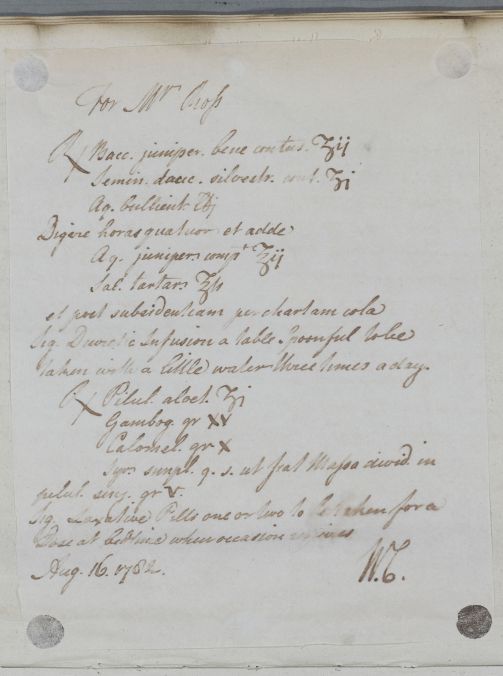 For Mr. Ross
℞ Bacc. juniper. bene contus. ℥ij
Semin. dauc. silvestr. cont. ℥j
Aq. bullient. ℔j
Digere horas quatuor et adde
Aq. juniperi compt. ℥ij
Sal. tartari ʒſs
et post subsidentiam per chartam cola
Sig. Diuretic Infusion a table Spoonful to be
taken with a little water three times a day.
℞ Pilul. aloet. ʒj
Gambog. gr XV
Calomel. gr X
Syr. simpl. q. s. ut fiat Massa divid. in
pilul. sing. gr V.
Sig. Laxative Pills one or two to be taken for a
Dose at bedtime when occasion
Aug. 16. 1782.
W.C.